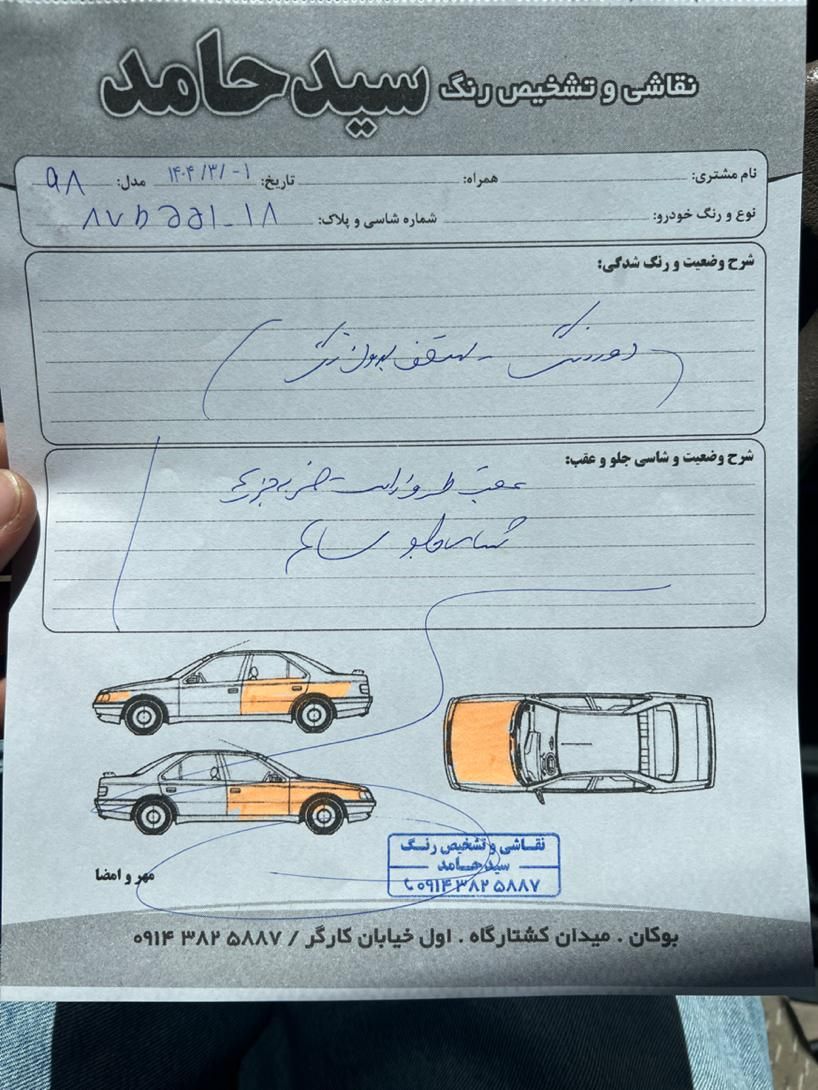 نقاشی و تشخیص رنگ سید حامد
نام مشتری: همراه: تاریخ: ۱۴۰۴/۳/۱۰ مدل: ۹۸
نوع و رنگ خودرو: شماره شاسی و پلاک:
شرح وضعیت و رنگ شدگی:
دور رنگ - سقف بدون رنگ
شرح وضعیت و شاسی جلو و عقب:
عقب طرف راست ضربه جزیی
شاسی جلو سالم
نقاشی و تشخیص رنگ
سید حامد
۰۹۱۴ ۳۸۲ ۵۸۸۷
مهر و امضا
بوکان . میدان کشتارگاه . اول خیابان کارگر / ۰۹۱۴ ۳۸۲ ۵۸۸۷